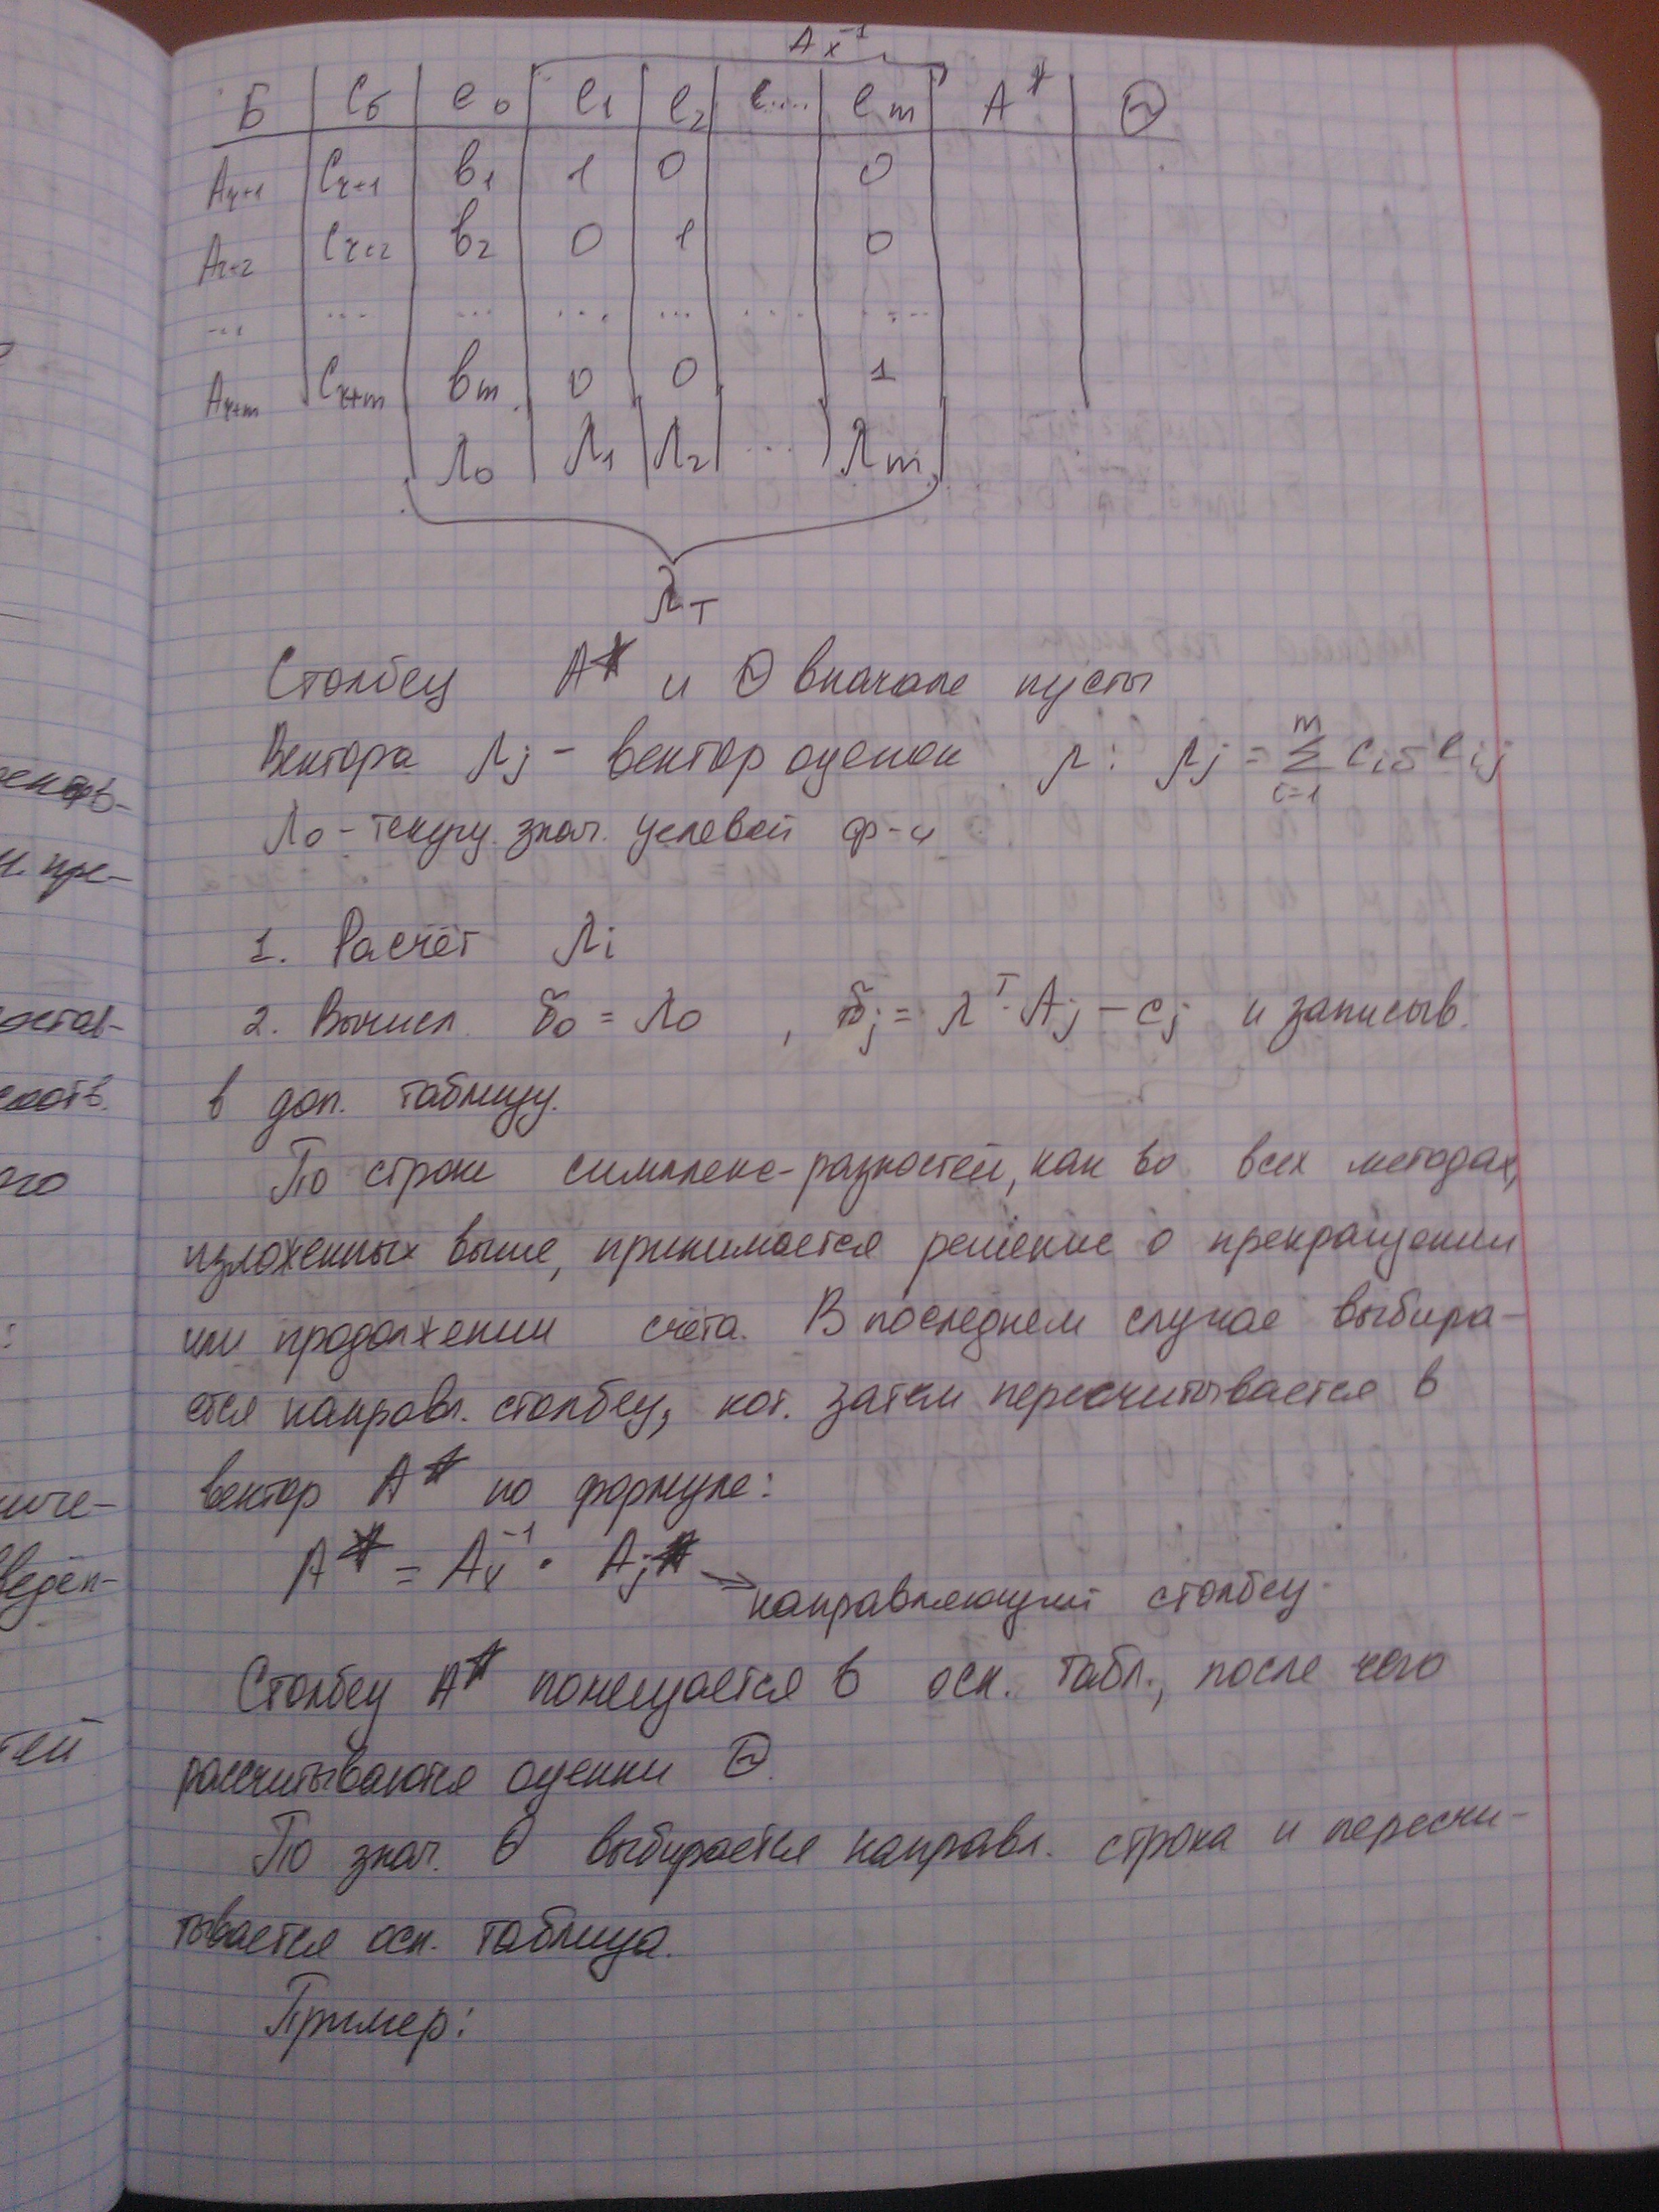 Aₓ⁻¹
Б | Cб | e₀ | e₁ | e₂ | e.... | eₘ | A* | Θ
Aᵣ₊₁ | Cᵣ₊₁ | b₁ | 1 | 0 | | 0
Aᵣ₊₂ | Cᵣ₊₂ | b₂ | 0 | 1 | | 0
... | ... | ... | ... | ... | .... | ....
Aᵣ₊ₘ | Cᵣ₊ₘ | bₘ | 0 | 0 | | 1
Λ₀ | Λ₁ | Λ₂ | ... | Λₘ
Λт
Столбец A* и Θ вначале пусты
Вектора Λj – вектор оценок Λ: Λj = Σᵢ₌₁ᵐ Ciб eij
Λ₀ – текущ. знач. целевой ф-и
1. Расчёт Λi
2. Вычисл. δ₀ = Λ₀ , δj = Λᵀ · Aj – Cj и записыв.
в доп. таблицу.
По строке симплекс-разностей, как во всех методах,
изложенных выше, принимается решение о прекращении
или продолжении счёта. В последнем случае выбира-
ется направл. столбец, кот. затем пересчитывается в
вектор A* по формуле:
A* = Aₓ⁻¹ · Aj* → направляющий столбец.
Столбец A* помещается в осн. табл., после чего
рассчитываются оценки Θ.
По знач. Θ выбирается направл. строка и пересчи-
тывается осн. таблица.
Пример: